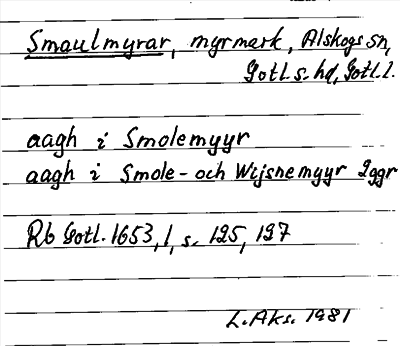 Smaulmyrar, myrmark, Alskogs sn,
Gotl. s. hd, Gotl. l.
aagh i Smolemyyr
aagh i Smole- och Wijsnemyyr 2ggr
Rb Gotl. 1653, 1, s. 125, 127
L. Aks. 1981